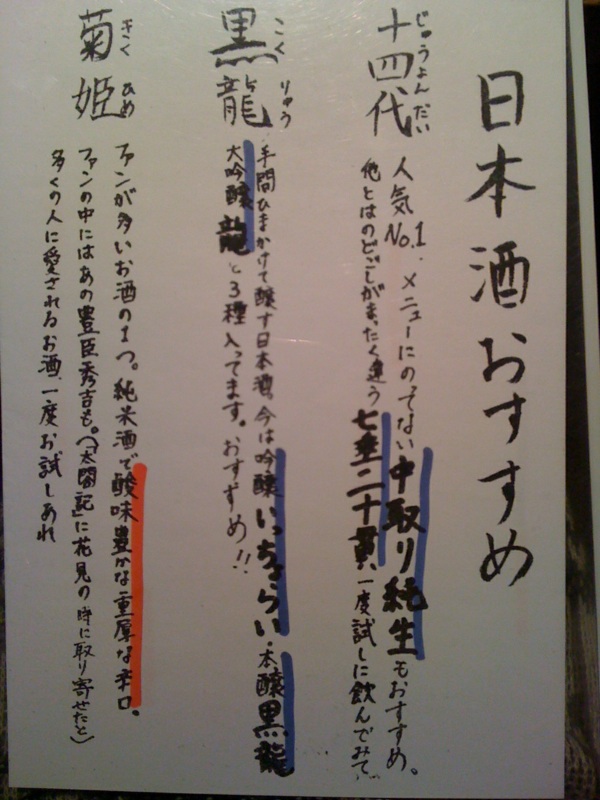 日本酒おすすめ
じゅうよんだい
十四代
人気No.1. メニューにのってない中取り純生もおすすめ。
他とはのどごしがまったく違う七垂二十貫、一度試しに飲んでみて。
こくりゅう
黒龍
手間ひまかけて醸す日本酒。今は吟醸いっちょらい・本醸黒龍
大吟醸龍と3種入ってます。おすすめ!!
きくひめ
菊姫
ファンが多いお酒の1つ。純米酒で酸味豊かな重厚な辛口。
ファンの中にはあの豊臣秀吉も。(「太閤記」に花見の時に取り寄せたと)
多くの人に愛されるお酒、一度お試しあれ